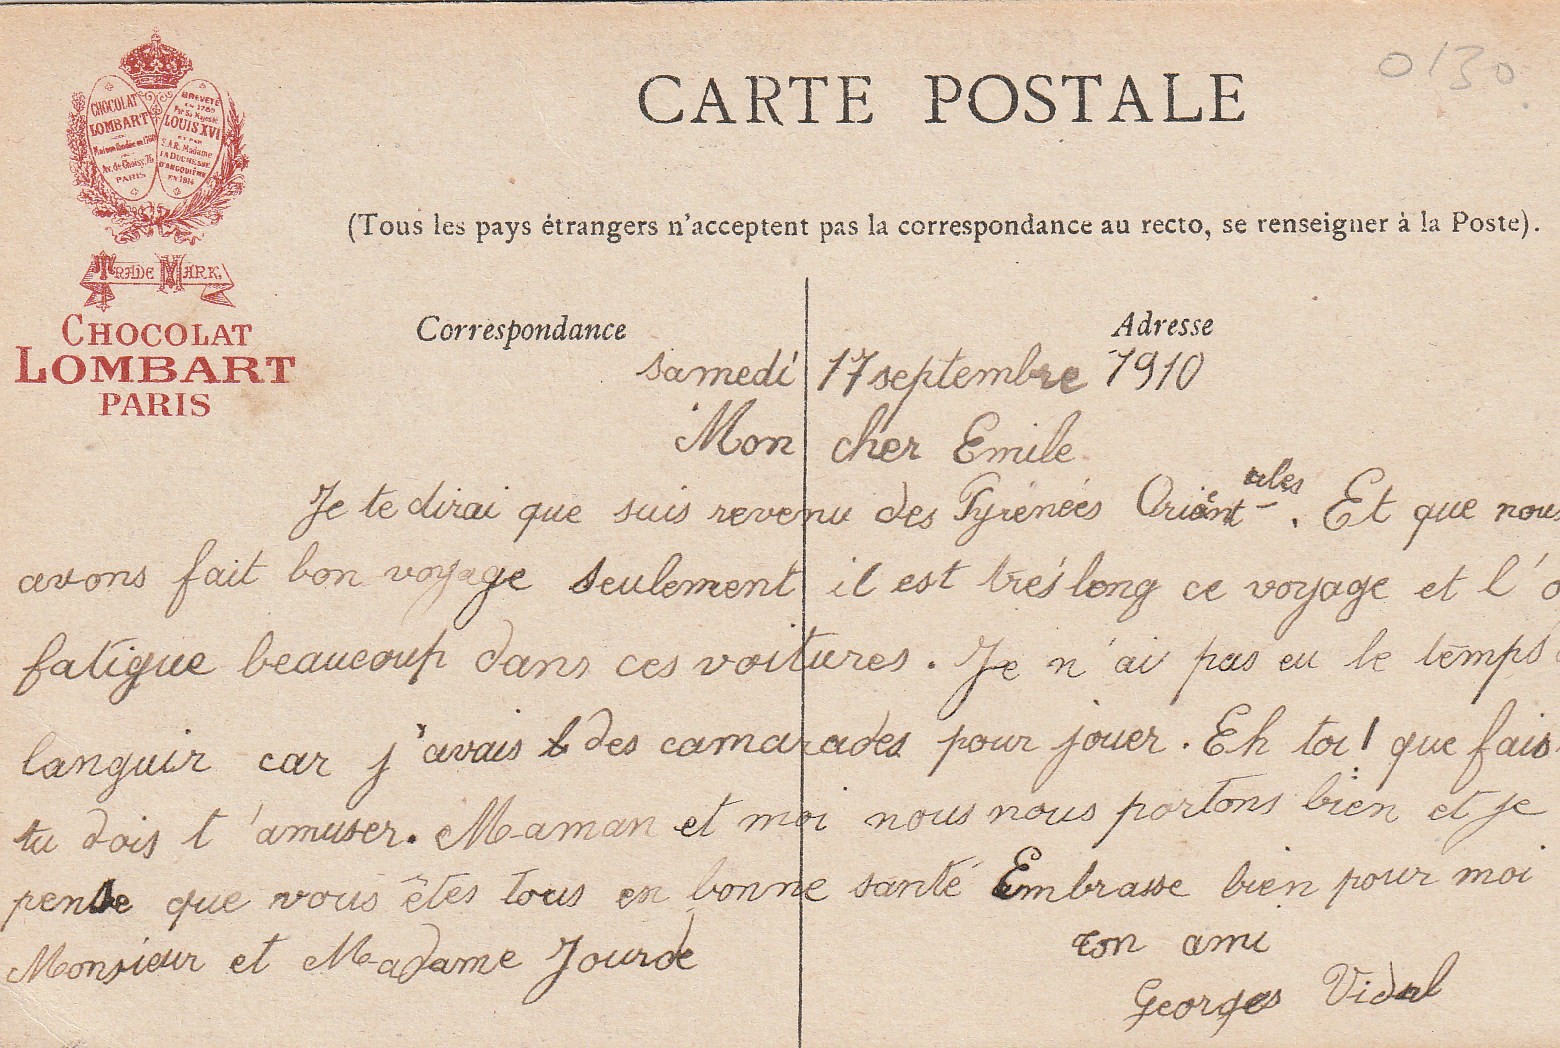 0130
CARTE POSTALE
CHOCOLAT
LOMBART
Maison fondée en 1760
Av. de Choisy, 75
PARIS
BREVETÉ
en 1760
Par Sa Majesté
LOUIS XVI
ET PAR
S.A.R. Madame
LA DUCHESSE
D'ANGOULÊME
EN 1814
TRADE MARK.
CHOCOLAT
LOMBART
PARIS
(Tous les pays étrangers n'acceptent pas la correspondance au recto, se renseigner à la Poste).
Correspondance
Adresse
samedi 17 septembre 1910
Mon cher Emile
Je te dirai que suis revenu des Pyrénées Orientales. Et que nous
avons fait bon voyage seulement il est très long ce voyage et l'o
fatigue beaucoup dans ces voitures. Je n'ai pas eu le temps
languir car j'avais des camarades pour jouer. Eh toi! que fais
tu dois t'amuser. Maman et moi nous nous portons bien et je
pense que vous êtes tous en bonne santé Embrasse bien pour moi
Monsieur et Madame Jourde
ton ami
Georges Vidal